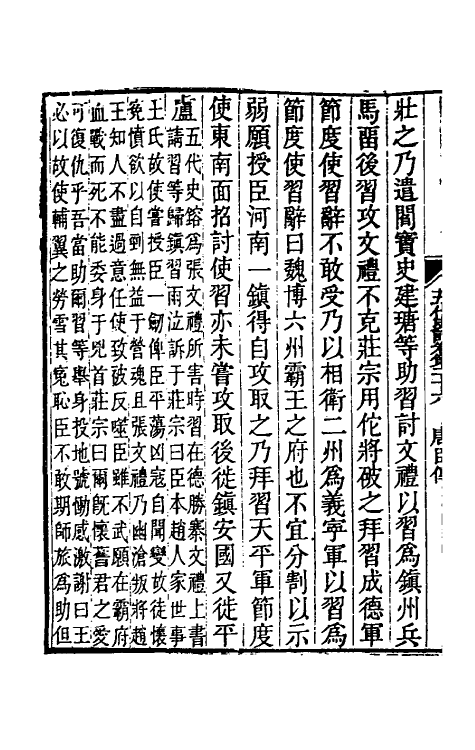 壯之乃遣閻寶史建瑭等助習討文禮以習爲鎮州兵
馬畱後習攻文禮不克莊宗用佗將破之拜習成德軍
節度使習辭不敢受乃以相衛二州爲義寜軍以習爲
節度使習辭曰魏博六州霸王之府也不宜分割以示
弱願授臣河南一鎮得自攻取之乃拜習天平軍節度
使東南面招討使習亦未嘗攻取後徙鎮安國又徙平
盧
五代史鎔爲張文禮所害時習在德勝寨文禮上書
請習等歸鎮習雨泣訴于莊宗曰臣本趙人家世事
王氏故使嘗授臣一劒俾臣平蕩凶寇自聞變故徒懷
寃憤欲以自剄無益于營魂且張文禮乃幽滄叛將趙
王知人不盡過意任使致破反噬臣雖不武願在霸府
血戰而死不能委身于兇首莊宗曰爾旣懷舊君之愛
可復仇乎吾當助爾習等舉身投地號慟感激謝曰王
必以故使輔翼之勞雪其寃恥臣不敢期師旅爲助但
唐臣傳